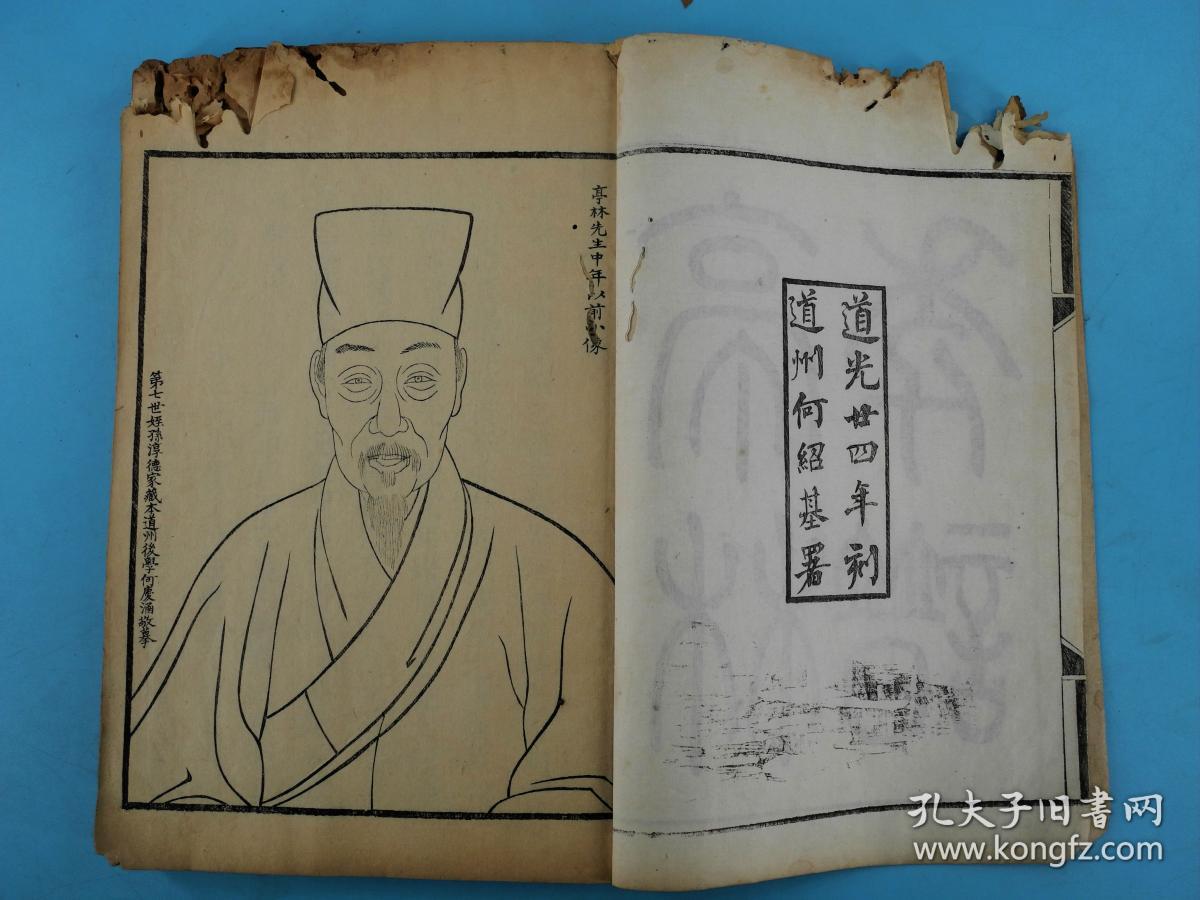 道光廿四年刻
道州何紹基署
亭林先生中年以前小像
第七世姪孫淳德家藏本道州後學何慶涵敬摹
孔夫子旧书网
www.kongfz.com